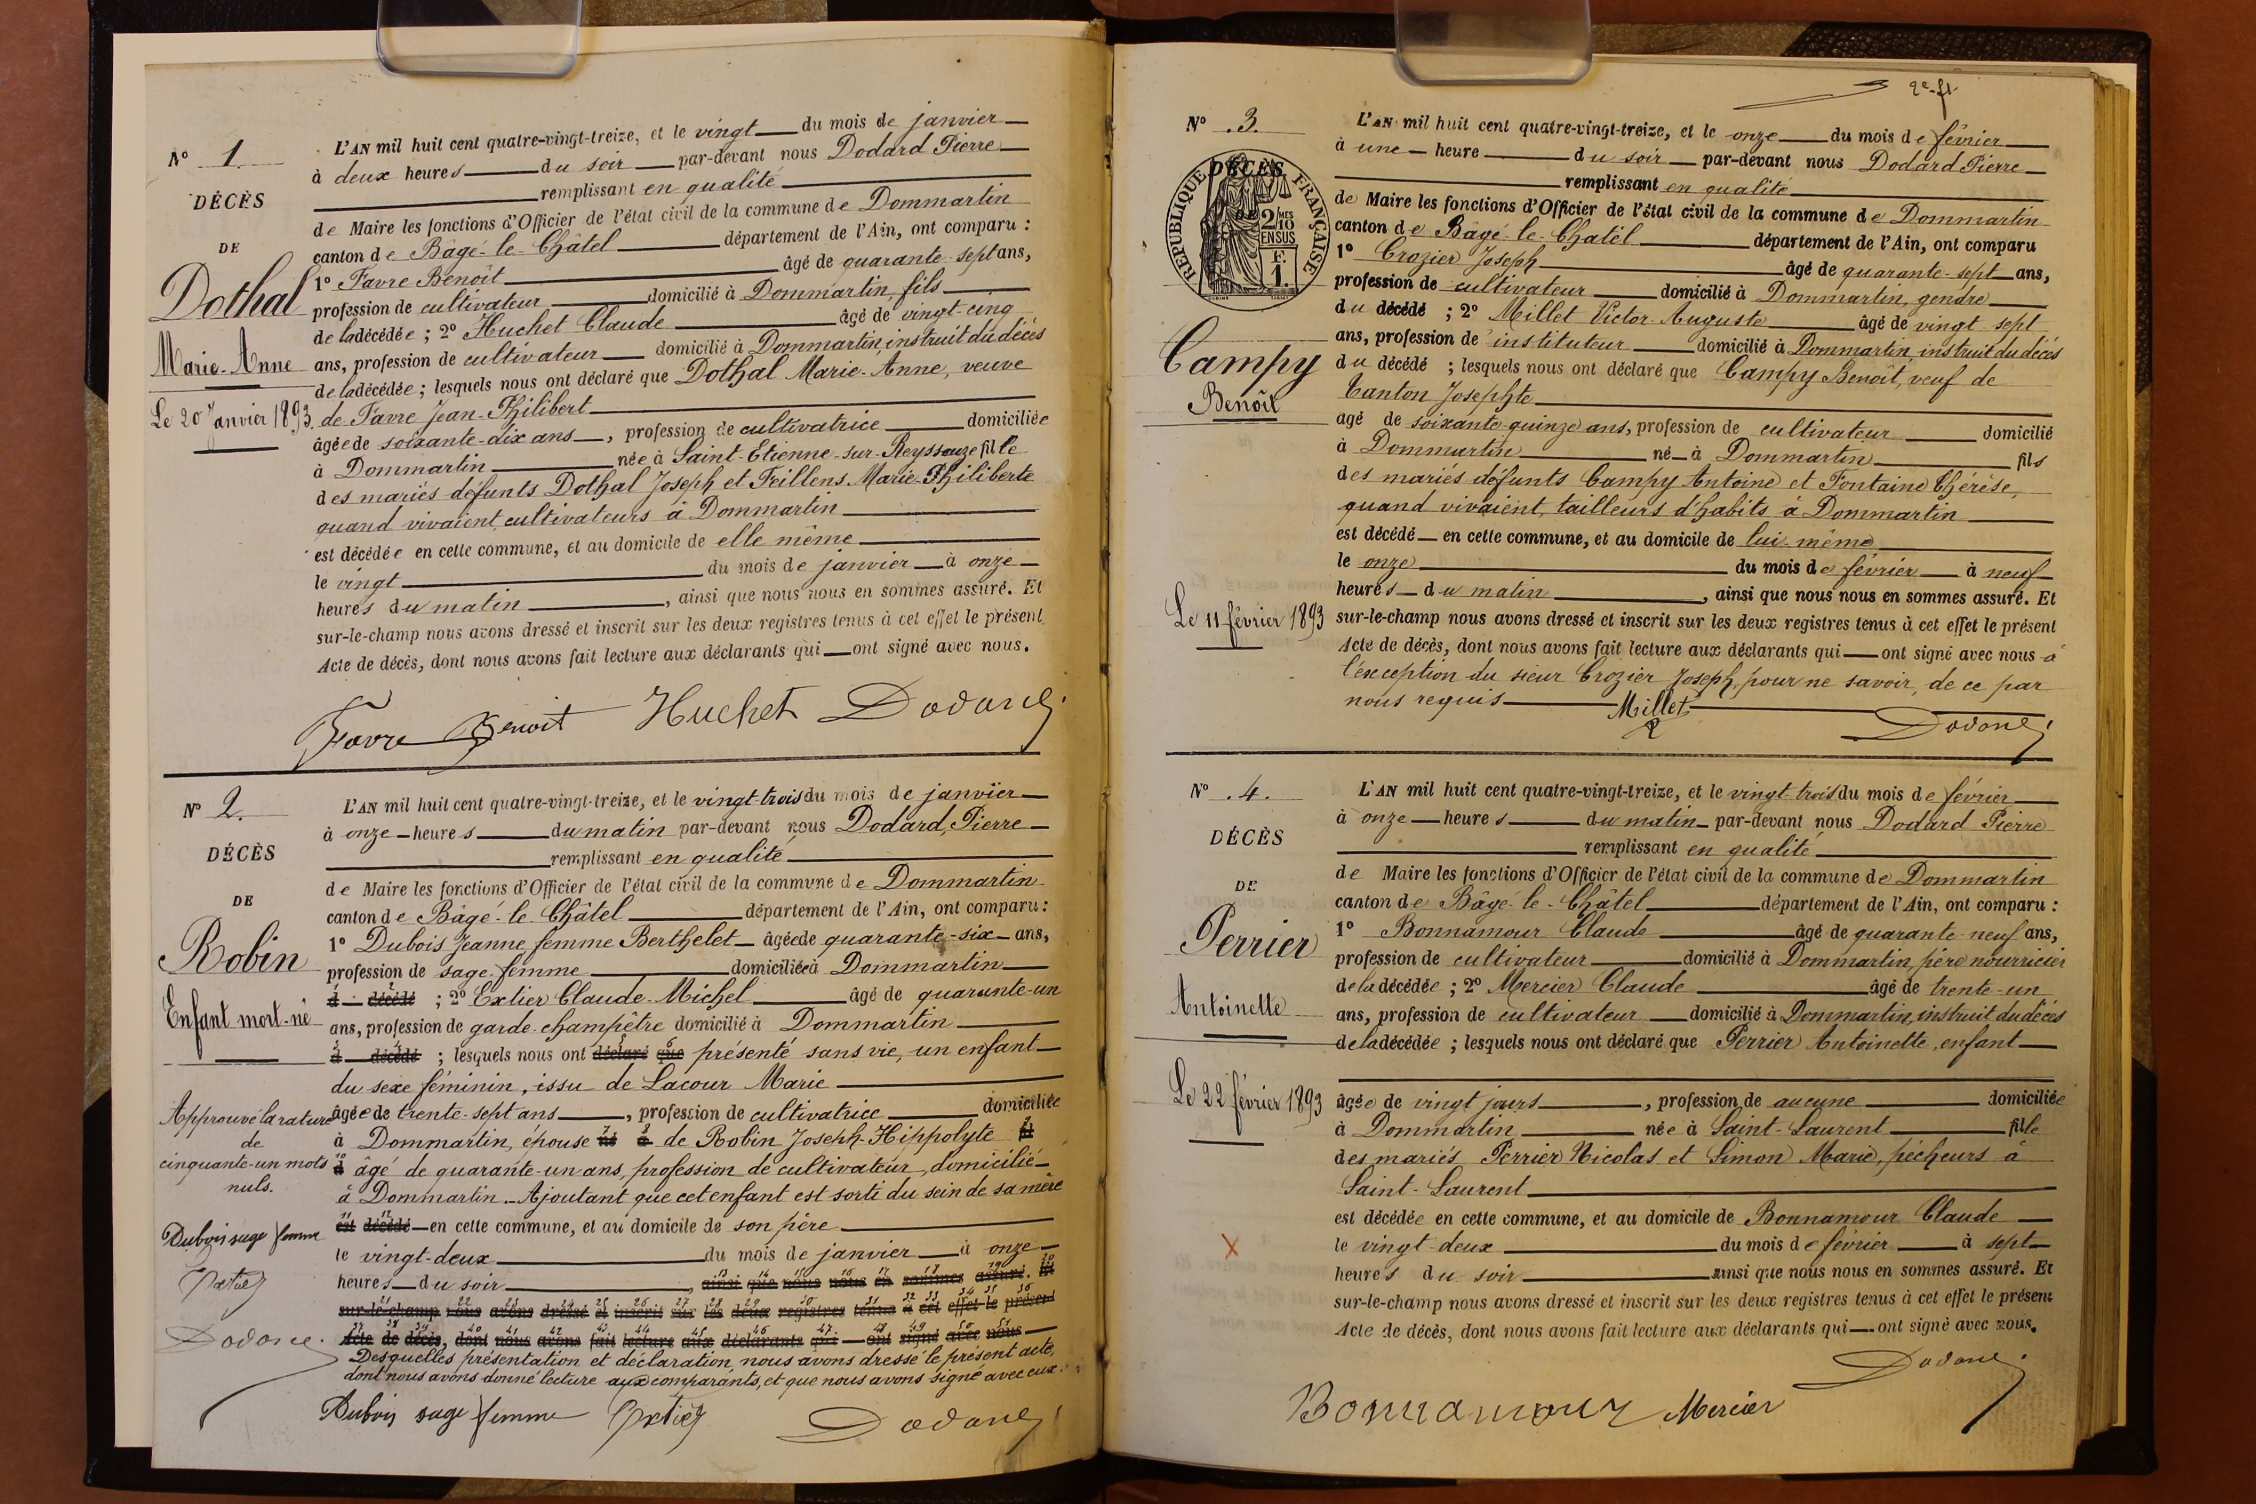 N° 1.
DÉCÈS
DE
Dothal
Marie-Anne
Le 20 janvier 1893.
L'AN mil huit cent quatre-vingt-treize, et le vingt du mois de janvier
à deux heures du soir par-devant nous Dodard Pierre
remplissant en qualité
de Maire les fonctions d'Officier de l'état civil de la commune de Dommartin
canton de Bâgé-le-Châtel département de l'Ain, ont comparu :
1° Favre Benoît âgé de quarante-sept ans,
profession de cultivateur domicilié à Dommartin, fils
de la décédée ; 2° Huchet Claude âgé de vingt-cinq
ans, profession de cultivateur domicilié à Dommartin, instruit du décès
de la décédée ; lesquels nous ont déclaré que Dothal Marie-Anne, veuve
de Favre Jean-Philibert
âgée de soixante-dix ans, profession de cultivatrice domiciliée
à Dommartin née à Saint-Etienne-sur-Reyssouze fille
des mariés défunts Dothal Joseph et Feillens Marie-Philiberte
quand vivaient cultivateurs à Dommartin
est décédée en cette commune, et au domicile de elle même
le vingt du mois de janvier à onze
heures du matin, ainsi que nous nous en sommes assuré. Et
sur-le-champ nous avons dressé et inscrit sur les deux registres tenus à cet effet le présent
Acte de décès, dont nous avons fait lecture aux déclarants qui ont signé avec nous.
Favre Benoit Huchet Dodard
N° 2.
DÉCÈS
DE
Robin
Enfant mort-né
Approuvé la rature
de
cinquante-un mots
nuls.
Dubois sage femme
Extier
Dodard
L'AN mil huit cent quatre-vingt-treize, et le vingt-trois du mois de janvier
à onze heures du matin par-devant nous Dodard, Pierre
remplissant en qualité
de Maire les fonctions d'Officier de l'état civil de la commune de Dommartin
canton de Bâgé-le-Châtel département de l'Ain, ont comparu :
1° Dubois Jeanne femme Berthelet âgée de quarante-six ans,
profession de sage femme domiciliée à Dommartin
d décédé ; 2° Extier Claude-Michel âgé de quarante-un
ans, profession de garde-champêtre domicilié à Dommartin
d décédé ; lesquels nous ont déclaré que présenté sans vie, un enfant
du sexe féminin, issu de Lacour Marie
âgée de trente-sept ans, profession de cultivatrice domiciliée
à Dommartin, épouse né à de Robin Joseph-Hippolyte fil
d âgé de quarante-un ans, profession de cultivateur, domicilié
à Dommartin. Ajoutant que cet enfant est sorti du sein de sa mère
est décédé en cette commune, et au domicile de son père
le vingt-deux du mois de janvier à onze
heures du soir, ainsi que nous nous en sommes assuré. Et
sur-le-champ nous avons dressé et inscrit sur les deux registres tenus à cet effet le présent
Acte de décès, dont nous avons fait lecture aux déclarants qui ont signé avec nous
Desquelles présentation et déclaration nous avons dressé le présent acte,
dont nous avons donné lecture aux comparants, et que nous avons signé avec eux.
Dubois sage femme Extier Dodard
2e ft
N° 3.
DÉCÈS
RÉPUBLIQUE FRANÇAISE
2/10 MES
EN SUS
F.
1.
Campy
Benoît
Le 11 février 1893
L'AN mil huit cent quatre-vingt-treize, et le onze du mois de février
à une heure du soir par-devant nous Dodard Pierre
remplissant en qualité
de Maire les fonctions d'Officier de l'état civil de la commune de Dommartin
canton de Bâgé-le-Châtel département de l'Ain, ont comparu
1° Crozier Joseph âgé de quarante-sept ans,
profession de cultivateur domicilié à Dommartin, gendre
du décédé ; 2° Millet Victor-Auguste âgé de vingt-sept
ans, profession de instituteur domicilié à Dommartin, instruit du décès
du décédé ; lesquels nous ont déclaré que Campy Benoît, veuf de
Canton Josephte
agé de soixante-quinze ans, profession de cultivateur domicilié
à Dommartin né à Dommartin fils
des mariés défunts Campy Antoine et Fontaine Thérèse,
quand vivaient, tailleurs d'habits à Dommartin
est décédé en cette commune, et au domicile de lui-même
le onze du mois de février à neuf
heures du matin, ainsi que nous nous en sommes assuré. Et
sur-le-champ nous avons dressé et inscrit sur les deux registres tenus à cet effet le présent
Acte de décès, dont nous avons fait lecture aux déclarants qui ont signé avec nous à
l'exception du sieur Crozier Joseph, pour ne savoir, de ce par
nous requis Millet Dodard
N° 4.
DÉCÈS
DE
Perrier
Antoinette
Le 22 février 1893
X
L'AN mil huit cent quatre-vingt-treize, et le vingt-trois du mois de février
à onze heures du matin par-devant nous Dodard Pierre
remplissant en qualité
de Maire les fonctions d'Officier de l'état civil de la commune de Dommartin
canton de Bâgé-le-Châtel département de l'Ain, ont comparu :
1° Bonnamour Claude âgé de quarante-neuf ans,
profession de cultivateur domicilié à Dommartin, père nourricier
de la décédée ; 2° Mercier Claude âgé de trente-un
ans, profession de cultivateur domicilié à Dommartin, instruit du décès
de la décédée ; lesquels nous ont déclaré que Perrier Antoinette, enfant
âgée de vingt jours, profession de aucune domiciliée
à Dommartin née à Saint-Laurent fille
des mariés Perrier Nicolas et Simon Marie, pêcheurs à
Saint-Laurent
est décédée en cette commune, et au domicile de Bonnamour Claude
le vingt-deux du mois de février à sept
heures du soir ainsi que nous nous en sommes assuré. Et
sur-le-champ nous avons dressé et inscrit sur les deux registres tenus à cet effet le présent
Acte de décès, dont nous avons fait lecture aux déclarants qui ont signé avec nous.
Dodard
Bonnamour Mercier